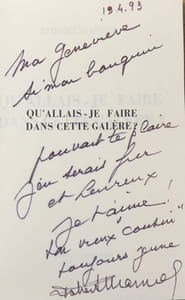 19.4.93
Ma Geneviève
Si mon bouquin
QU'ALLAIS-JE FAIRE
DANS CETTE GALÈRE ?
pouvait te plaire
j'en serais fier
et heureux
Je t'aime !
ton vieux "cousin"
toujours jeune
Robert Manuel